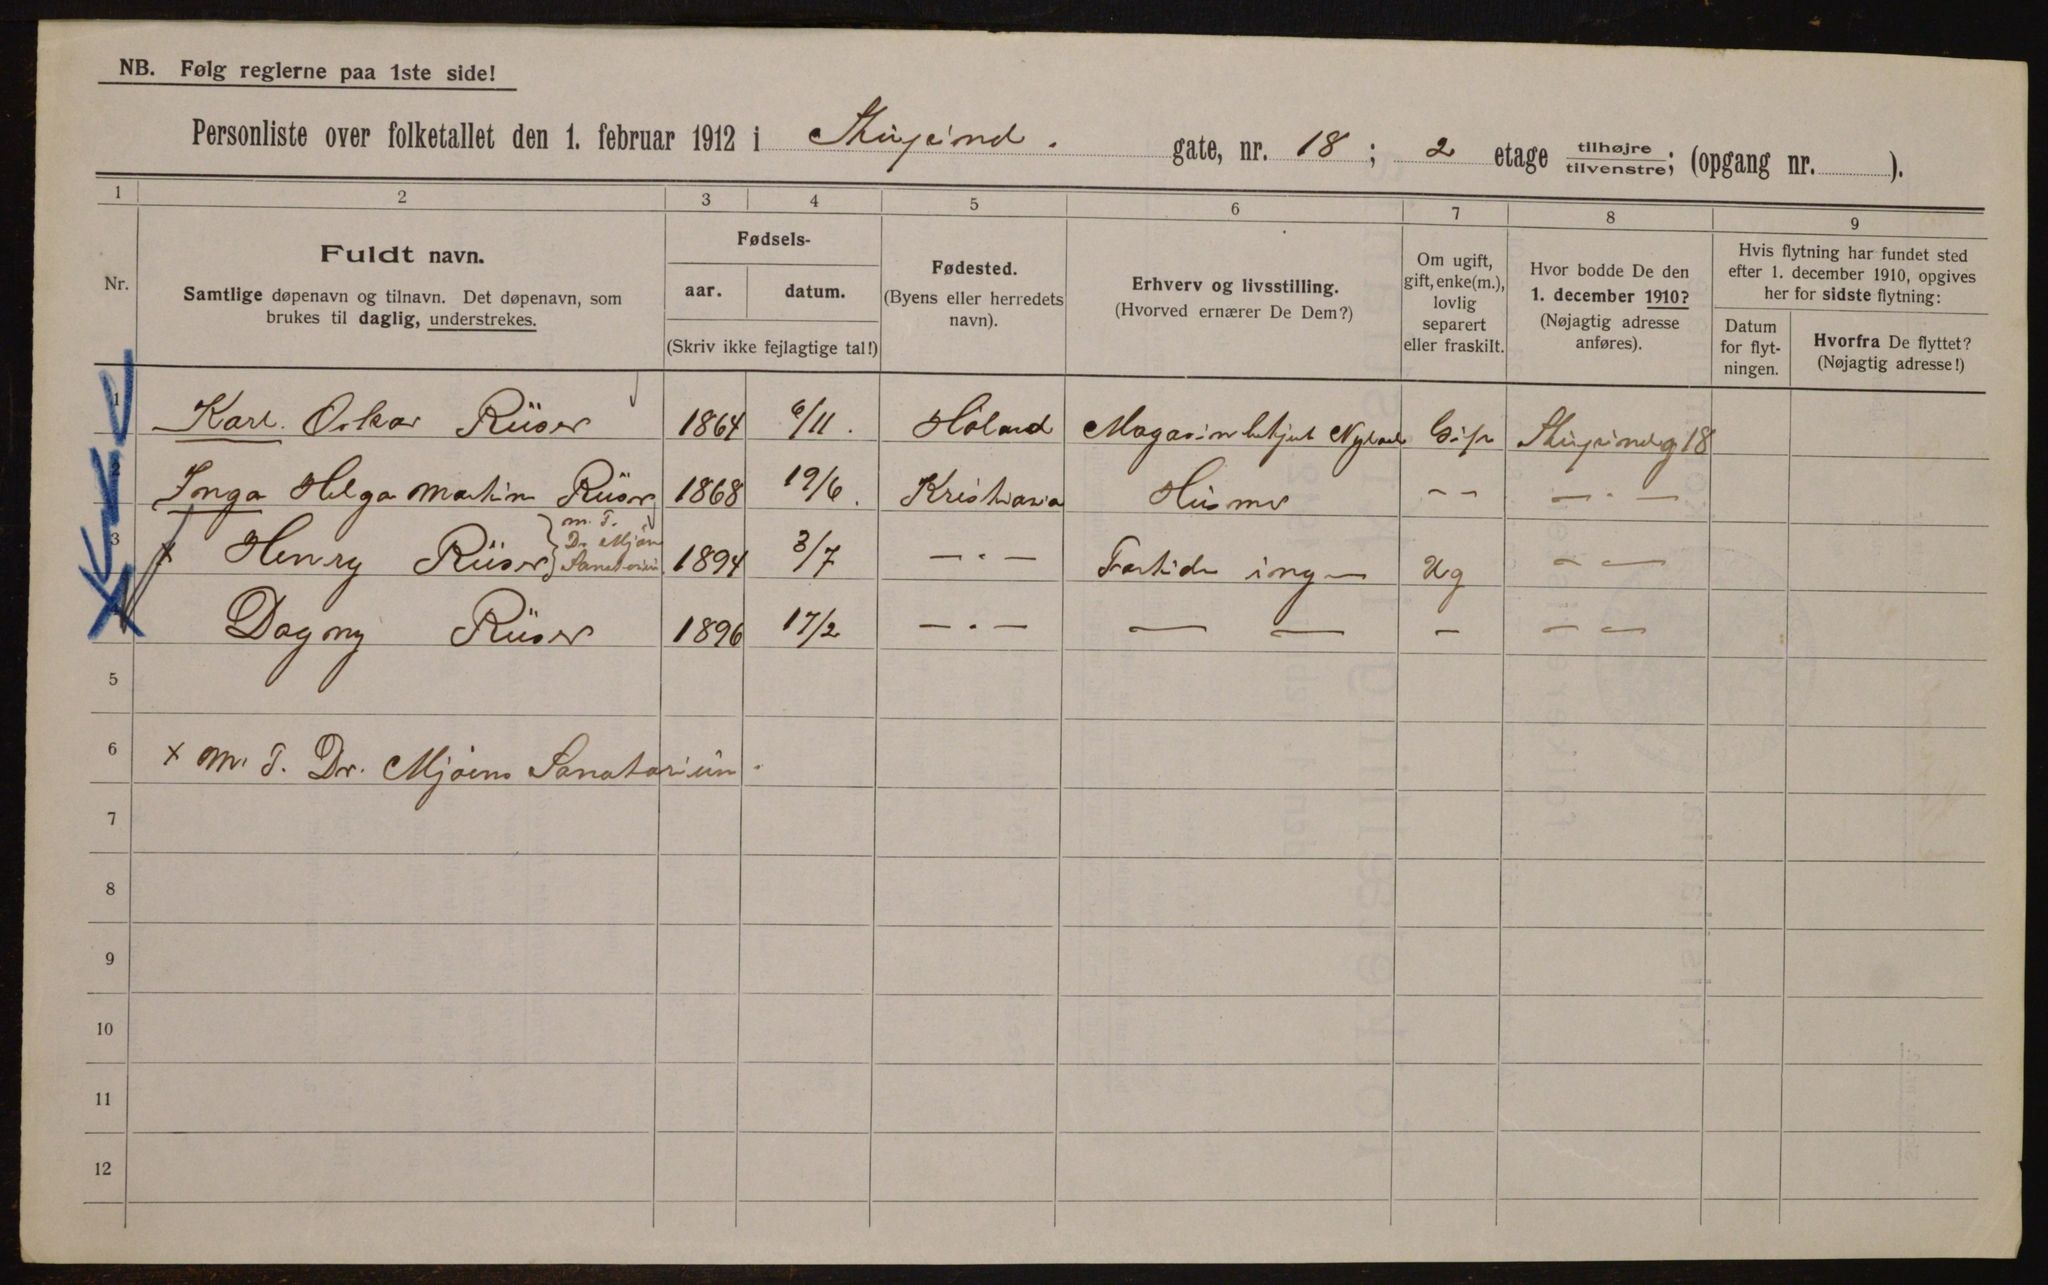 NB. Følg reglerne paa 1ste side!
Personliste over folketallet den 1. februar 1912 i gate, nr. 18; 2 etage tilhøjre / tilvenstre; (opgang nr. ).
1 2 3 4 5 6 7 8 9
Nr.
Fuldt navn.
Samtlige døpenavn og tilnavn. Det døpenavn, som
brukes til daglig, understrekes.
Fødsels-
aar. datum.
(Skriv ikke fejlagtige tal!)
Fødested.
(Byens eller herredets
navn).
Erhverv og livsstilling.
(Hvorved ernærer De Dem?)
Om ugift,
gift, enke(m.),
lovlig
separert
eller fraskilt.
Hvor bodde De den
1. december 1910?
(Nøjagtig adresse
anføres).
Hvis flytning har fundet sted
efter 1. december 1910, opgives
her for sidste flytning:
Datum
for flyt-
ningen.
Hvorfra De flyttet?
(Nøjagtig adresse!)
1 Karl. Oskar Rüser 1864 6/11. Höland Gift 18
2 Inga Helga Martin Rüser 1868 19/6. Kristiania Husmor – – – . –
3 x Henry Rüser { m. T. Dr. Mjøen Sanatorium 1894 3/7 – . – Ug – –
4 Dagny Rüser 1896 17/2 – . – – – – – –
5
6 x M. T. Dr. Mjøens Sanatorium.
7
8
9
10
11
12